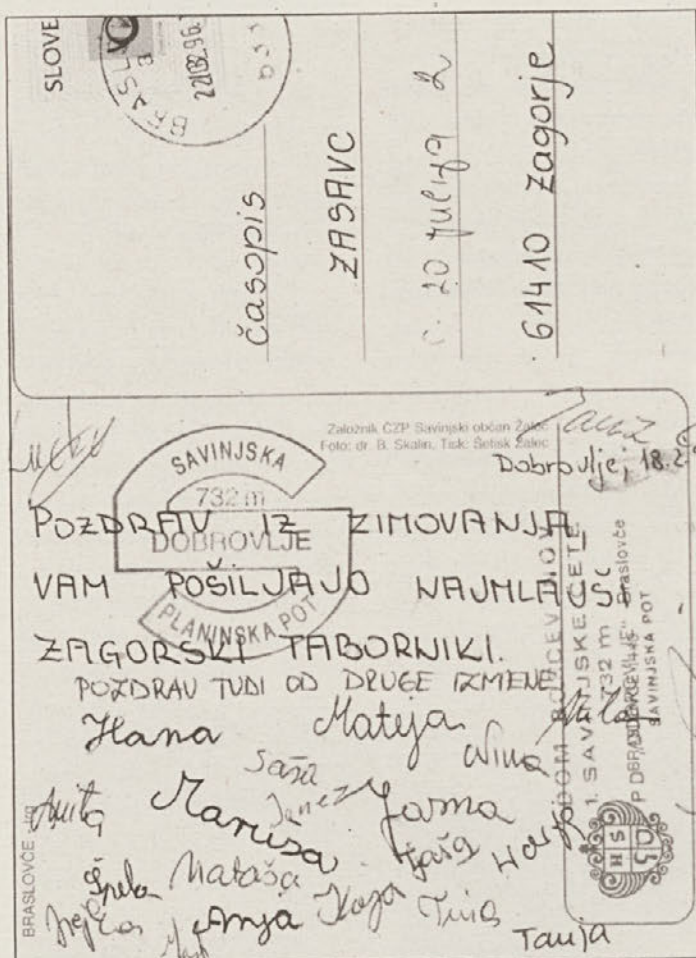 SLOVE
BRASL
3
22.02.96.
časopis
ZASAVC
c. 20 julija 2
61410 Zagorje
Založnik ČZP Savinjski občan Žalec
Foto: dr. B. Skalin, Tisk: Šetisk Žalec
Dobrovlje, 18.2
SAVINJSKA
732 m
DOBROVLJE
PLANINSKA POT
POZDRAV IZ ZIMOVANJA,
VAM POŠILJAJO NAJMLAJŠI
ZAGORSKI TABORNIKI.
POZDRAV TUDI OD DRUGE IZMENE
Hana Mateja
Nina
Saša
Anita Maruša Janez Jasna
Špela Nataša
Anja Kaja Tina
Tanja
DOM BORCEV
1. SAVINJSKE ČETE
732 m
Braslovče
SAVINJSKA POT
BRASLOVČE